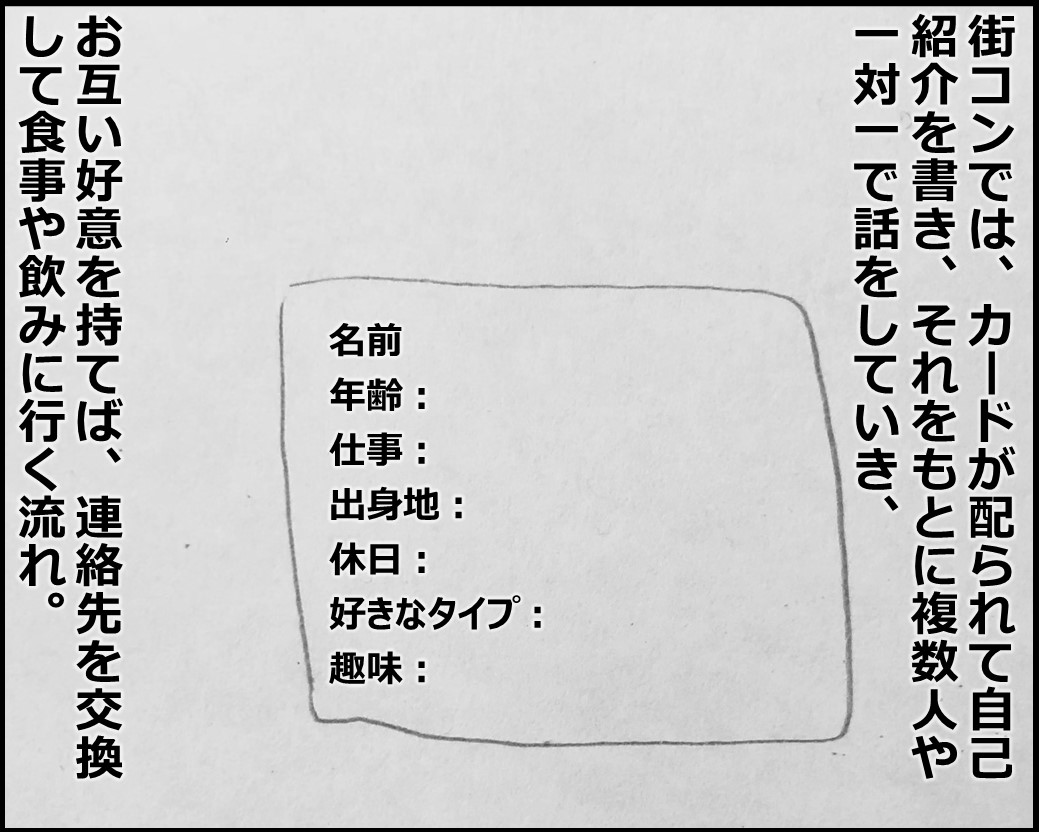 街コンでは、カードが配られて自己
紹介を書き、それをもとに複数人や
一対一で話をしていき、
名前
年齢：
仕事：
出身地：
休日：
好きなタイプ：
趣味：
お互い好意を持てば、連絡先を交換
して食事や飲みに行く流れ。